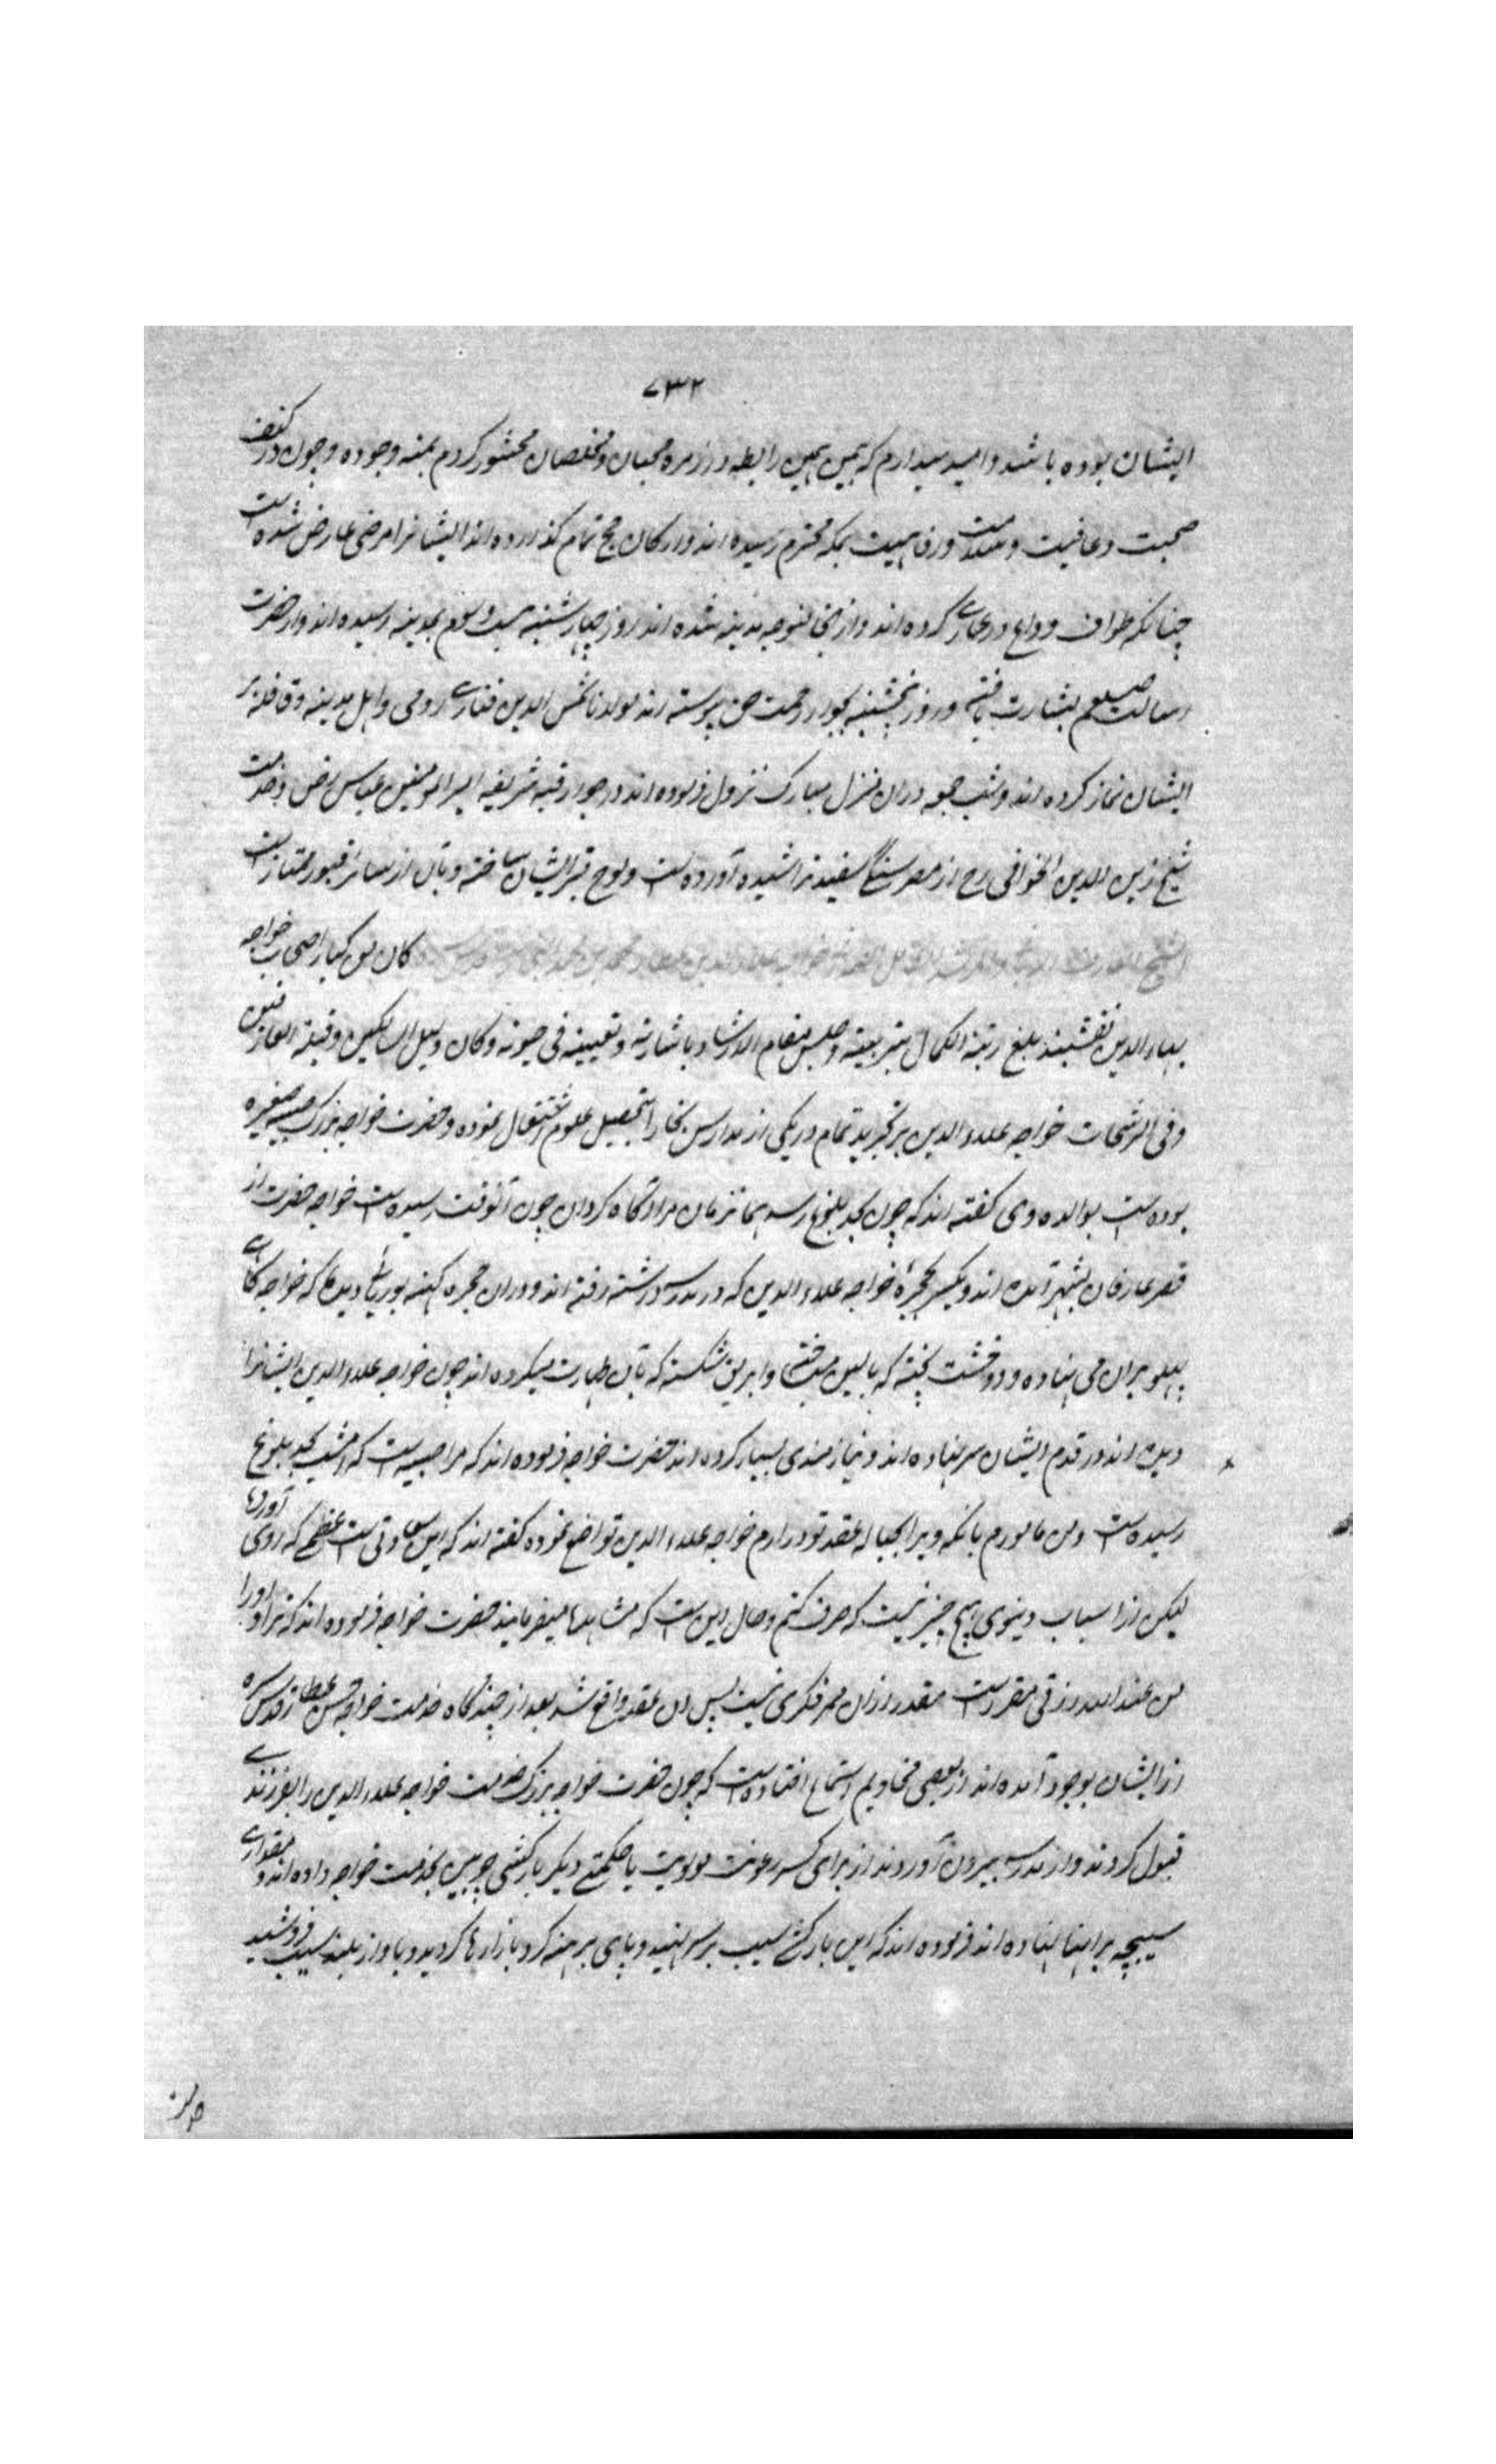 ۷۳۲
ایشان بوده باشد و امید میدارم که بهمین رابطه در زمره محبان و مخلصان محشور گردم بمنه و جوده و چون در کنف
صحت و عافیت و سلامت و رفاهیت بمکه محترم رسیده اند و ارکان حج تمام گذارده اند ایشانرا مرضی عارض شده است
چنانکه طواف وداع در عماری کرده اند و از آنجا متوجه مدینه شده اند روز چهارشنبه بیست و سوم بمدینه رسیده اند و از حضرت
رسالت صلعم بشارت یافته و روز پنجشنبه بجوار رحمت حق پیوسته اند مولانا شمس الدین فناری رومی و اهل مدینه و قافله بر
ایشان نماز کرده اند و شب جمعه در آن منزل مبارک نزول فرموده اند در جوار قبه شریفه امیر المومنین عباس رض و خدمت
شیخ زین الدین الخوافی رح از مصر سنگ سفید تراشیده آورده است و لوح قبر ایشان ساخته و بآن از سائر قبور ممتاز است
کان من کبار اصحاب خواجه
بهاء الدین نقشبند بلغ رتبة الکمال بتربیته و جلس مقام الارشاد باشارته و تعیینه فی حیوته و کان دلیل السالکین و قبلة العارفین
و فی الرشحات خواجه علاء الدین بر تجرید تمام در یکی از مدارس بخارا بتحصیل علوم اشتغال نموده و حضرت خواجه بزرگ صبیه صغیره
بوده است بوالده وی گفته اند که چون بحد بلوغ رسد همانزمان مرا آگاه گردان چون آنوقت رسیده است خواجه حضرت از
قصر عارفان بشهر آمده اند و یکسر بحجره خواجه علاء الدین که در مدرسه داشته رفته اند و در آن حجره کهنه بوریائی دیده اند که خواجه گاهی
پهلو بر آن می نهاده و دو خشت پخته که بالین میساخته و ابریق شکسته که بآن طهارت میکرده اند چون خواجه علاء الدین ایشانرا
دیده اند در قدم ایشان سر نهاده اند و نیازمندی بسیار کرده اند حضرت خواجه فرموده اند که مرا صبیه است که امشب بحد بلوغ
رسیده است و من مامورم بآنکه ویرا بحباله عقد تو در آرم خواجه علاء الدین تواضع نموده گفته اند که این سعادتی است عظمی که روی آورده
لیکن از اسباب دنیوی هیچ چیز نیست که صرف کنم و حال این است که مشاهده میفرمایند حضرت خواجه فرموده اند که ترا و او را
من عند الله رزقی مقرر است مقدر از آن ممر فکری نیست پس آن عقد واقع شد بعد از چندگاه خدمت خواجه حسن عطار قدس سره
از ایشان بوجود آمده اند از بعضی مخادیم استماع افتاده است که چون حضرت خواجه بزرگ خدمت خواجه علاء الدین را بفرزندی
قبول کردند و از مدرسه بیرون آوردند از برای کسر رعونت مولویت یا حکمتی دیگر بارکشی چوبین بخدمت خواجه داده اند و مقداری
سیبچه بر آنها نهاده اند فرموده اند که این بارکش سیب بر سر نهید و پای برهنه گرد بازارها گردید و بآواز بلند سیب فروشید